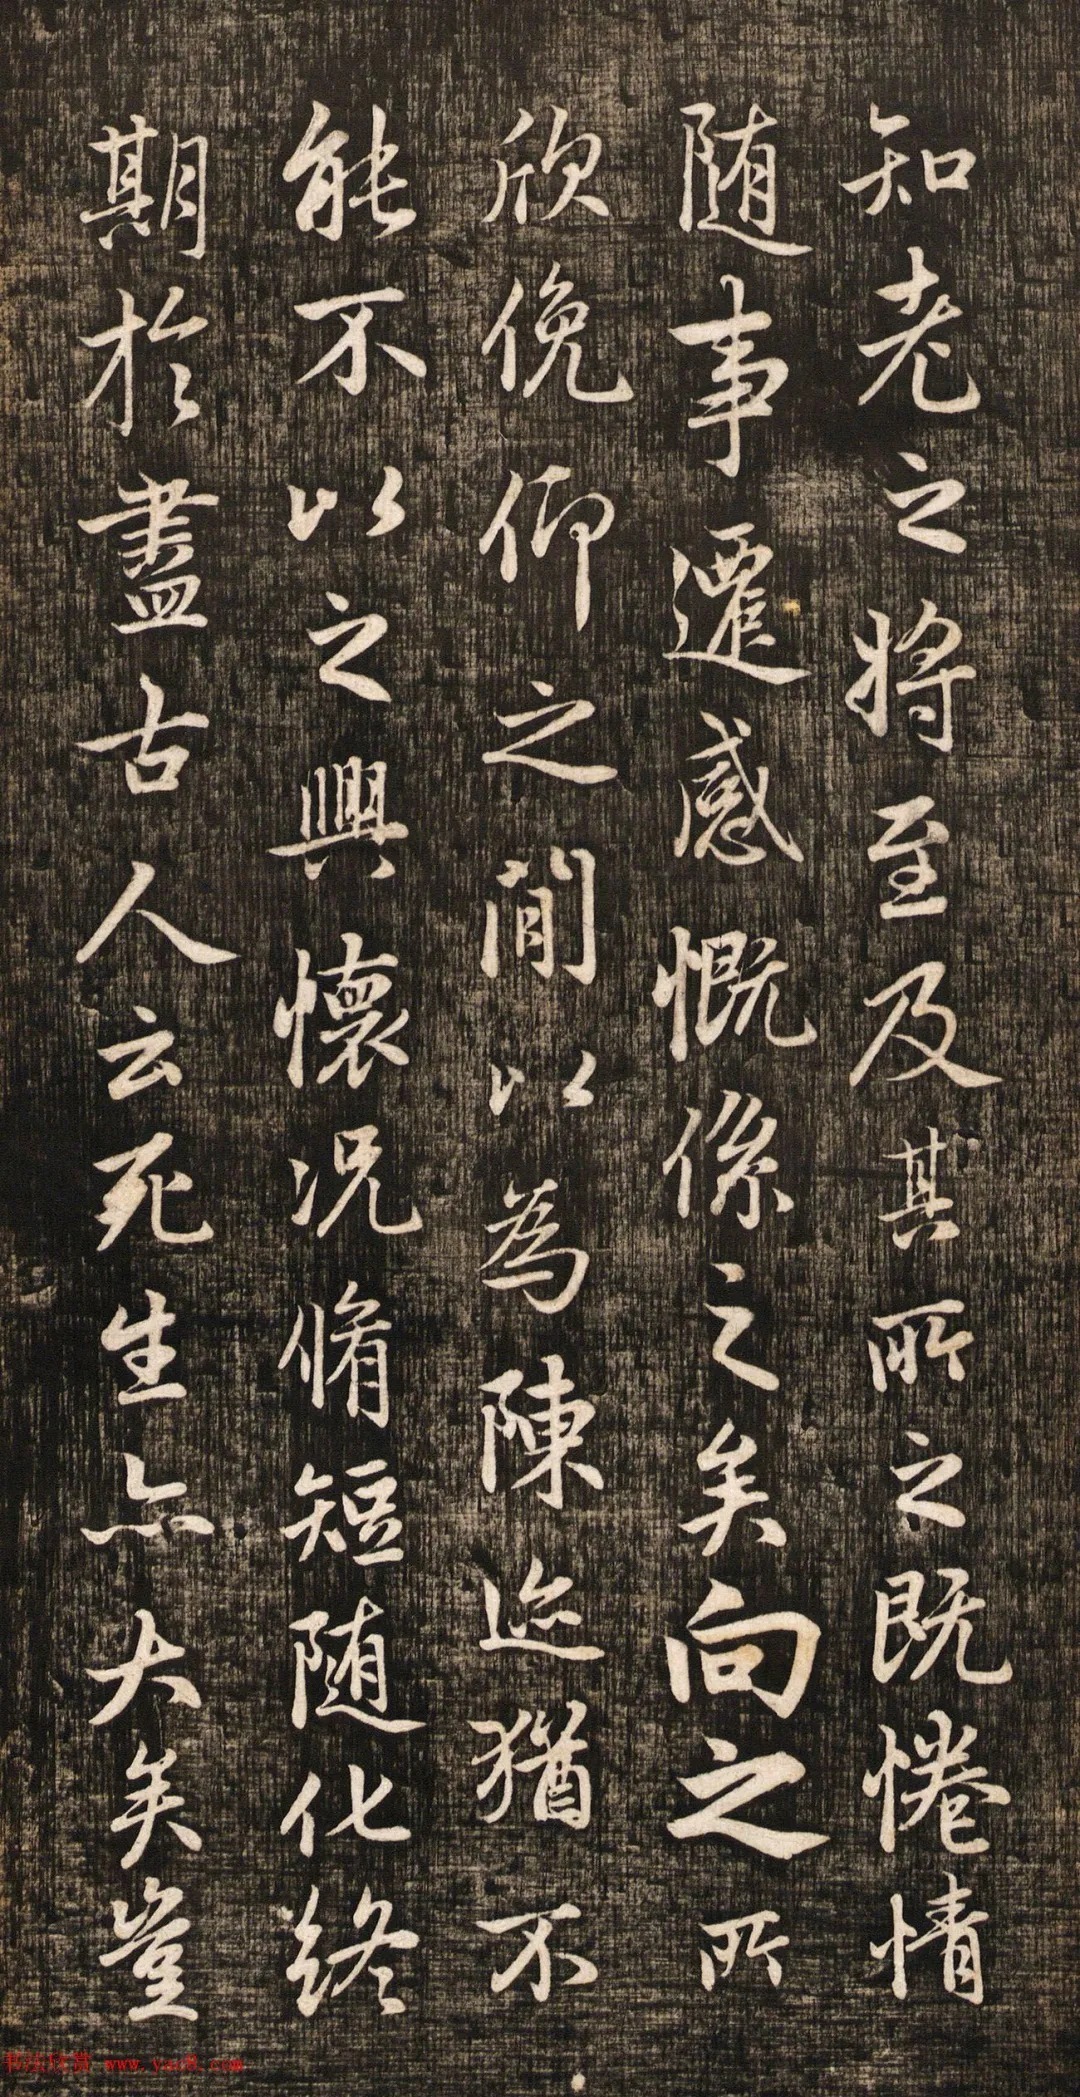 知老之将至及其所之既惓情
随事遷感慨係之矣向之所
欣俛仰之間以為陳迹猶不
能不以之興懷况脩短随化終
期於盡古人云死生亦大矣豈
书法欣赏